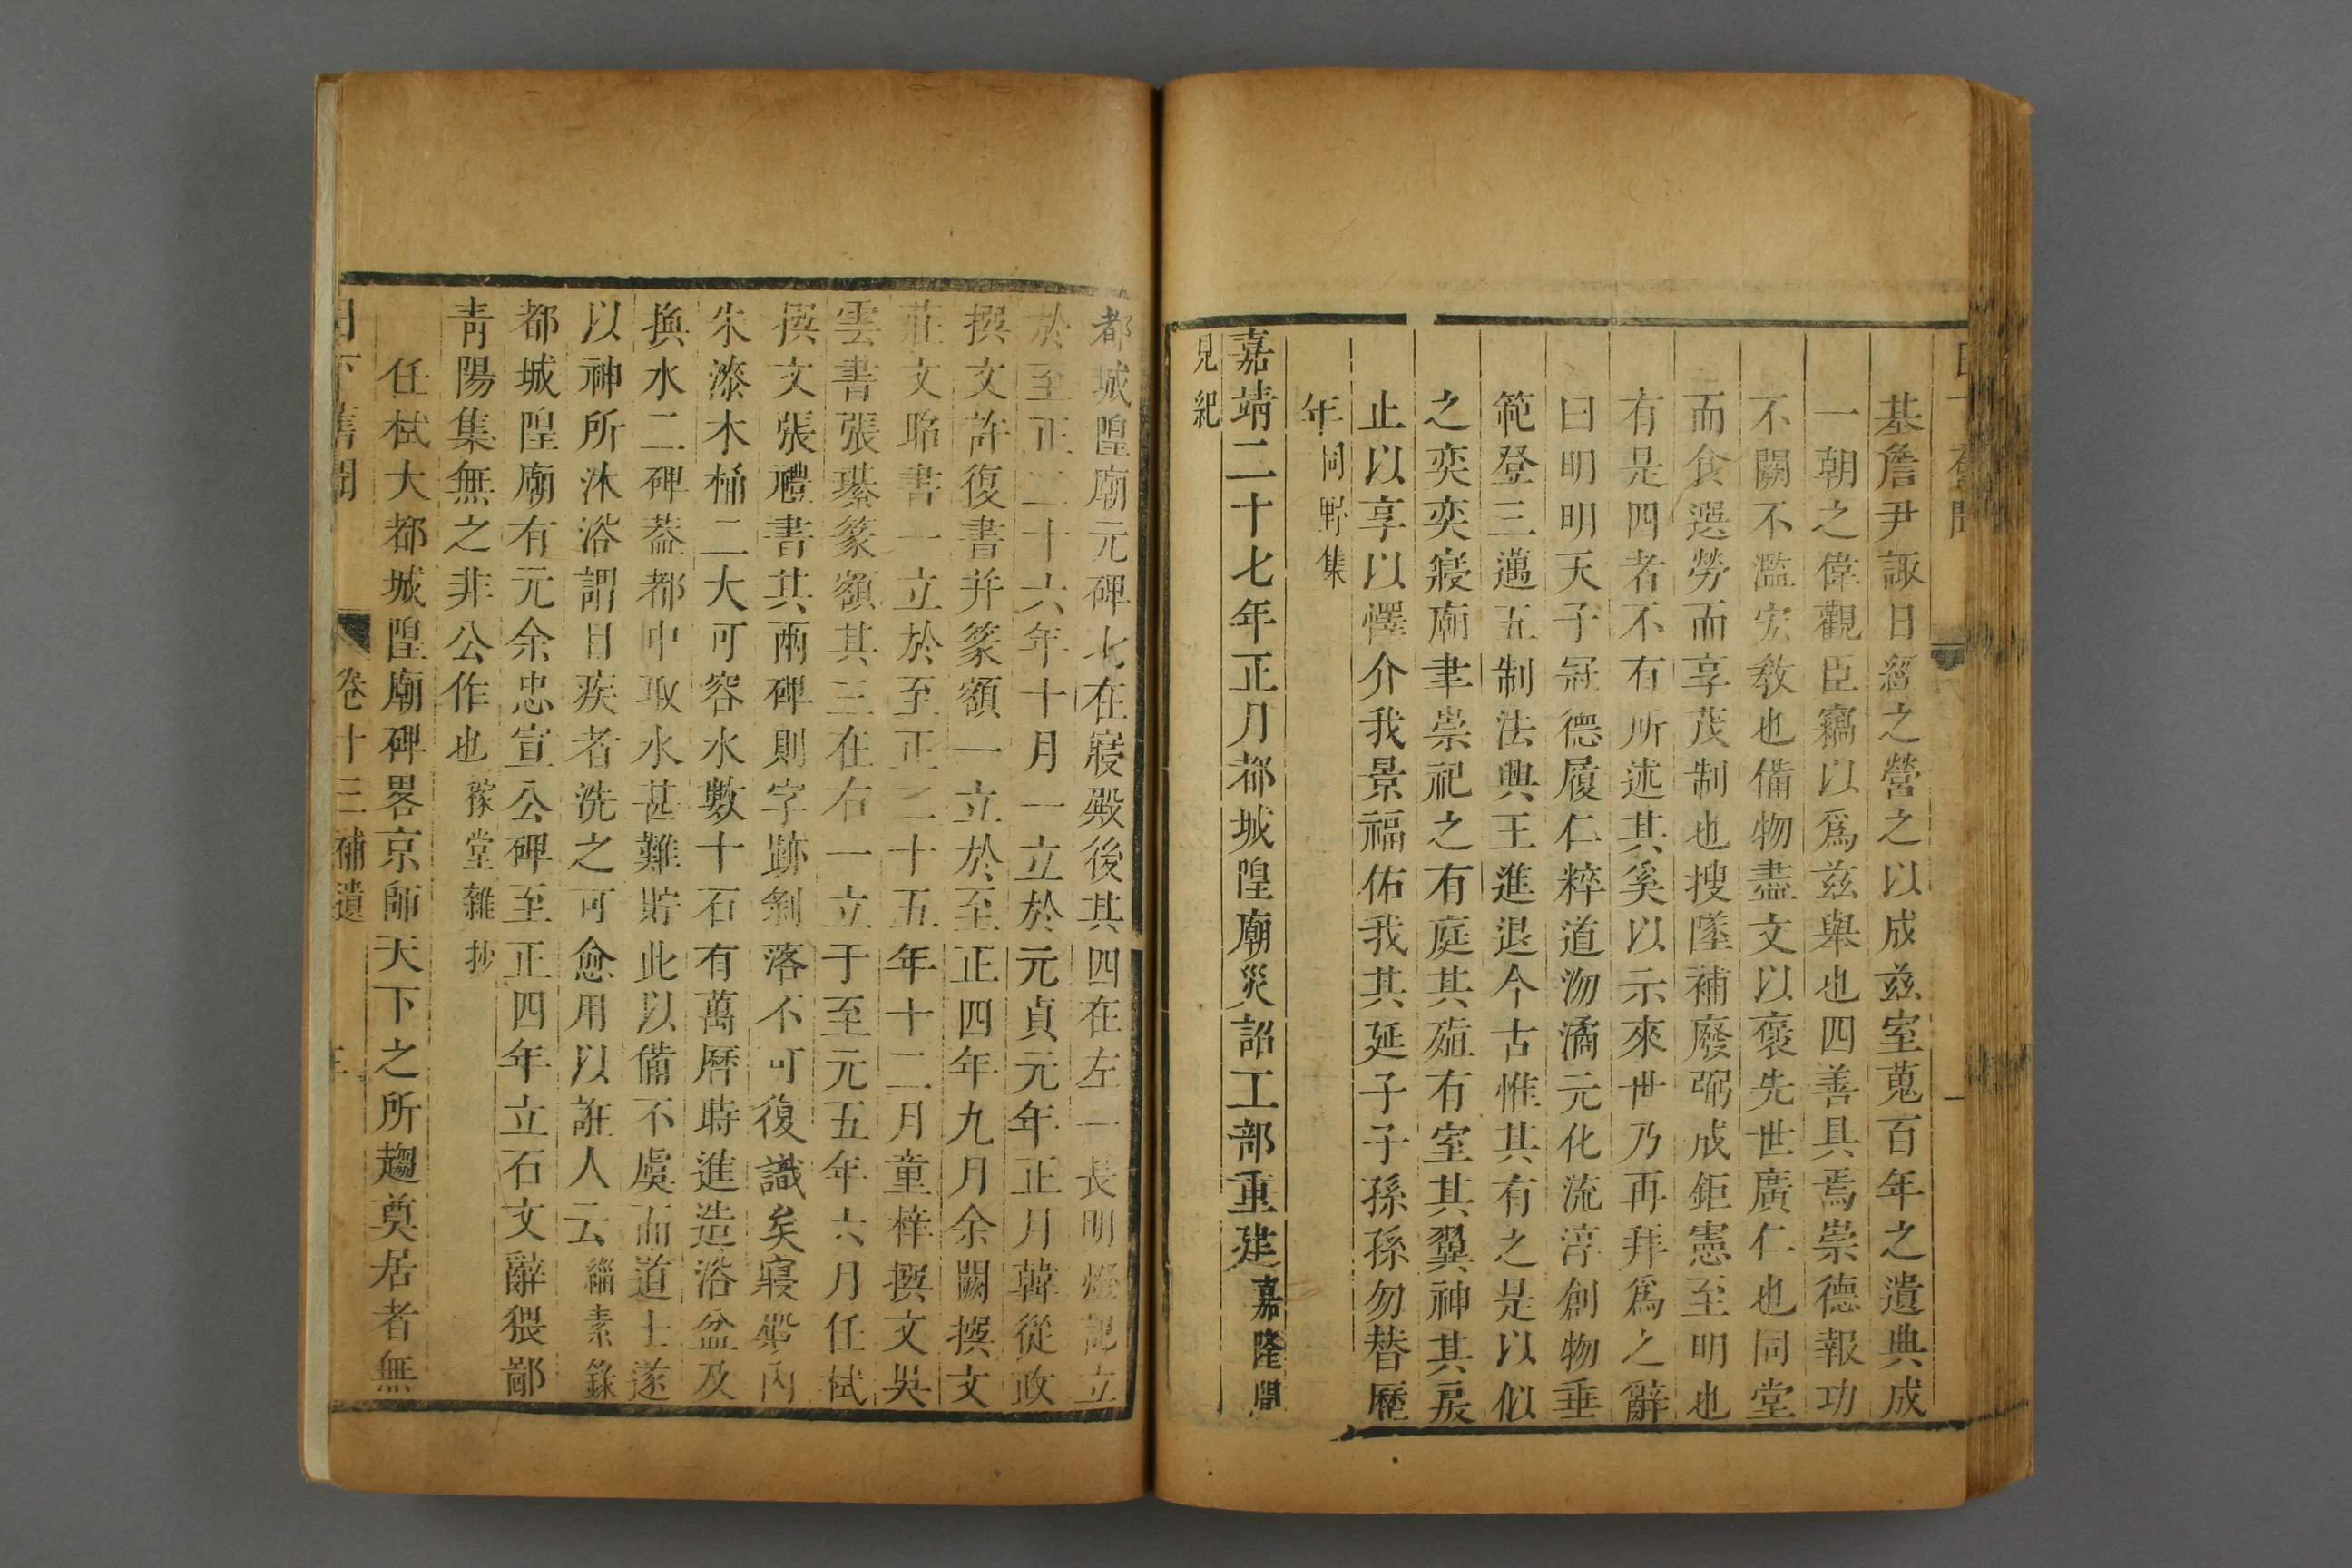 基詹尹諏日經之營之以成茲室蒐百年之遺典成
一朝之偉觀臣竊以爲茲舉也四善具焉崇德報功
不闕不濫宏敎也備物盡文以褒先世廣仁也同堂
而食選勞而享茂制也搜墜補廢弼成鉅憲至明也
有是四者不有所述其奚以示來世乃再拜爲之辭
曰明明天子冠德履仁粹道沕潏元化流淳創物垂
範登三邁五制法興王進退今古惟其有之是以似
之奕奕寢廟聿崇祀之有庭其殖有室其翼神其戾
止以享以懌介我景福佑我其延子子孫孫勿替歷
年 同野集
嘉靖二十七年正月都城隍廟災詔工部重建 嘉隆聞
見紀
都城隍廟元碑七在寢殿後其四在左一長明燈記立
於至正二十六年十月一立於元貞元年正月韓從政
撰文許復書并篆額一立於至正四年九月余闕撰文
莊文昭書一立於至正二十五年十二月童梓撰文吳
雲書張璂篆額其三在右一立于至元五年六月任栻
撰文張禮書其兩碑則字跡剝落不可復識矣寢殿內
朱漆木桶二大可容水數十石有萬曆時進造浴盆及
換水二碑葢都中取水甚難貯此以備不虞而道士遂
以神所沐浴謂目疾者洗之可愈用以誑人云 緇素錄
都城隍廟有元余忠宣公碑至正四年立石文辭猥鄙
靑陽集無之非公作也 稼堂雜抄
任栻大都城隍廟碑畧京師天下之所趨奠居者無
日下舊聞 卷十三補遺